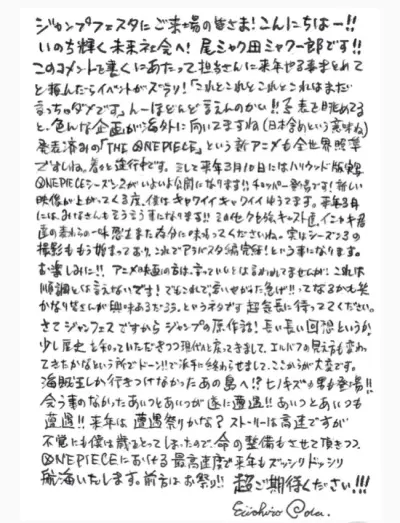 ジャンプフェスタにご来場の皆さま！こんにちはー！！
いのち輝く未来社会へ！尾ミャク田ミャクー郎です！！
このコメントを書くにあたって担当さんに来年やる事まとめて
と頼んだらイベントがズラリ！「これとこれとこれとこれはまだ
言っちゃダメです」んーほとんど言えんのかい！！予表を眺めてる
と、色んな企画が海外に向いてますね（日本含めという意味ね）
発表済みの「THE ONE PIECE」という新アニメも全世界照準
ですしね。着々と進行中です。そして来年3月10日にはハリウッド版実写
ONE PIECEシーズン2がいよいよ公開になります！！チョッパー登場です！新しい
映像が上がってくる度、僕はキャワイイキャワイイゆうてます。来年3月
には、みなさんもそうこうすになります！！この他クセ強キャスト達、イトキ居
の忍もう一味思う存分に味わってくださいね。実はシーズン3の
撮影ももう始まっており、これでアラバスタ編完結！という事になります。
お楽しみに！！アニメ映画の方は、言っていいとは言われてませんが、これは
順調とは言えないです！でもこれで、言いやがった急げ！！ってなるかも笑
かなり皆さんが興味あるだろう、というネタです 超気長に待っててください。
さてジャンフェスですからジャンプの原作話！長い長い回想というか
少し歴史を知っていただきつつ現代へと戻ってきまして、エルバフの見え方も変わっ
てきたかなという所でドーン！！で派手に終わらせまして、ここからが大変です。
海賊王しか行きつけなかったあの島へ！？ヒノキズの男も登場！！
会う事のなかったあいつとあいつが遂に遭遇！！あいつとあいつも
遭遇！！来年は遭遇祭りかな？ストーリーは高速ですが
不覚にも僕は歳をとってしまったので、命の整備もさせて頂きつつ
ONE PIECEにおける最高速度で来年もズッシリドッシリ
航海いたします。前方はお祭り！！超ご期待ください！！！
Eiichiro Oda.